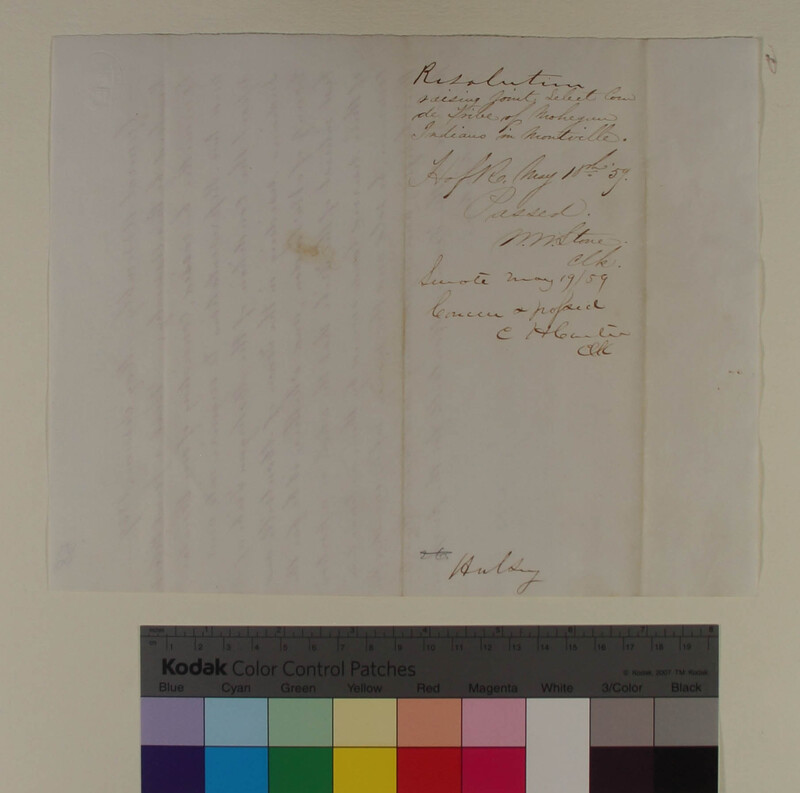 Resolution
raising joint select Com
de Tribe of Mohegan
Indians in Montville.
H of R. May 18th '59.
Passed.
W. W. Stone.
Clk.
Senate May 19/59
Concur & passed
C H
Clk
Hulsey
Kodak Color Control Patches
© Kodak, 2007 TM: Kodak
Blue Cyan Green Yellow Red Magenta White 3/Color Black
1 2 3 4 5 6 7 8
1 2 3 4 5 6 7 8 9 10 11 12 13 14 15 16 17 18 19